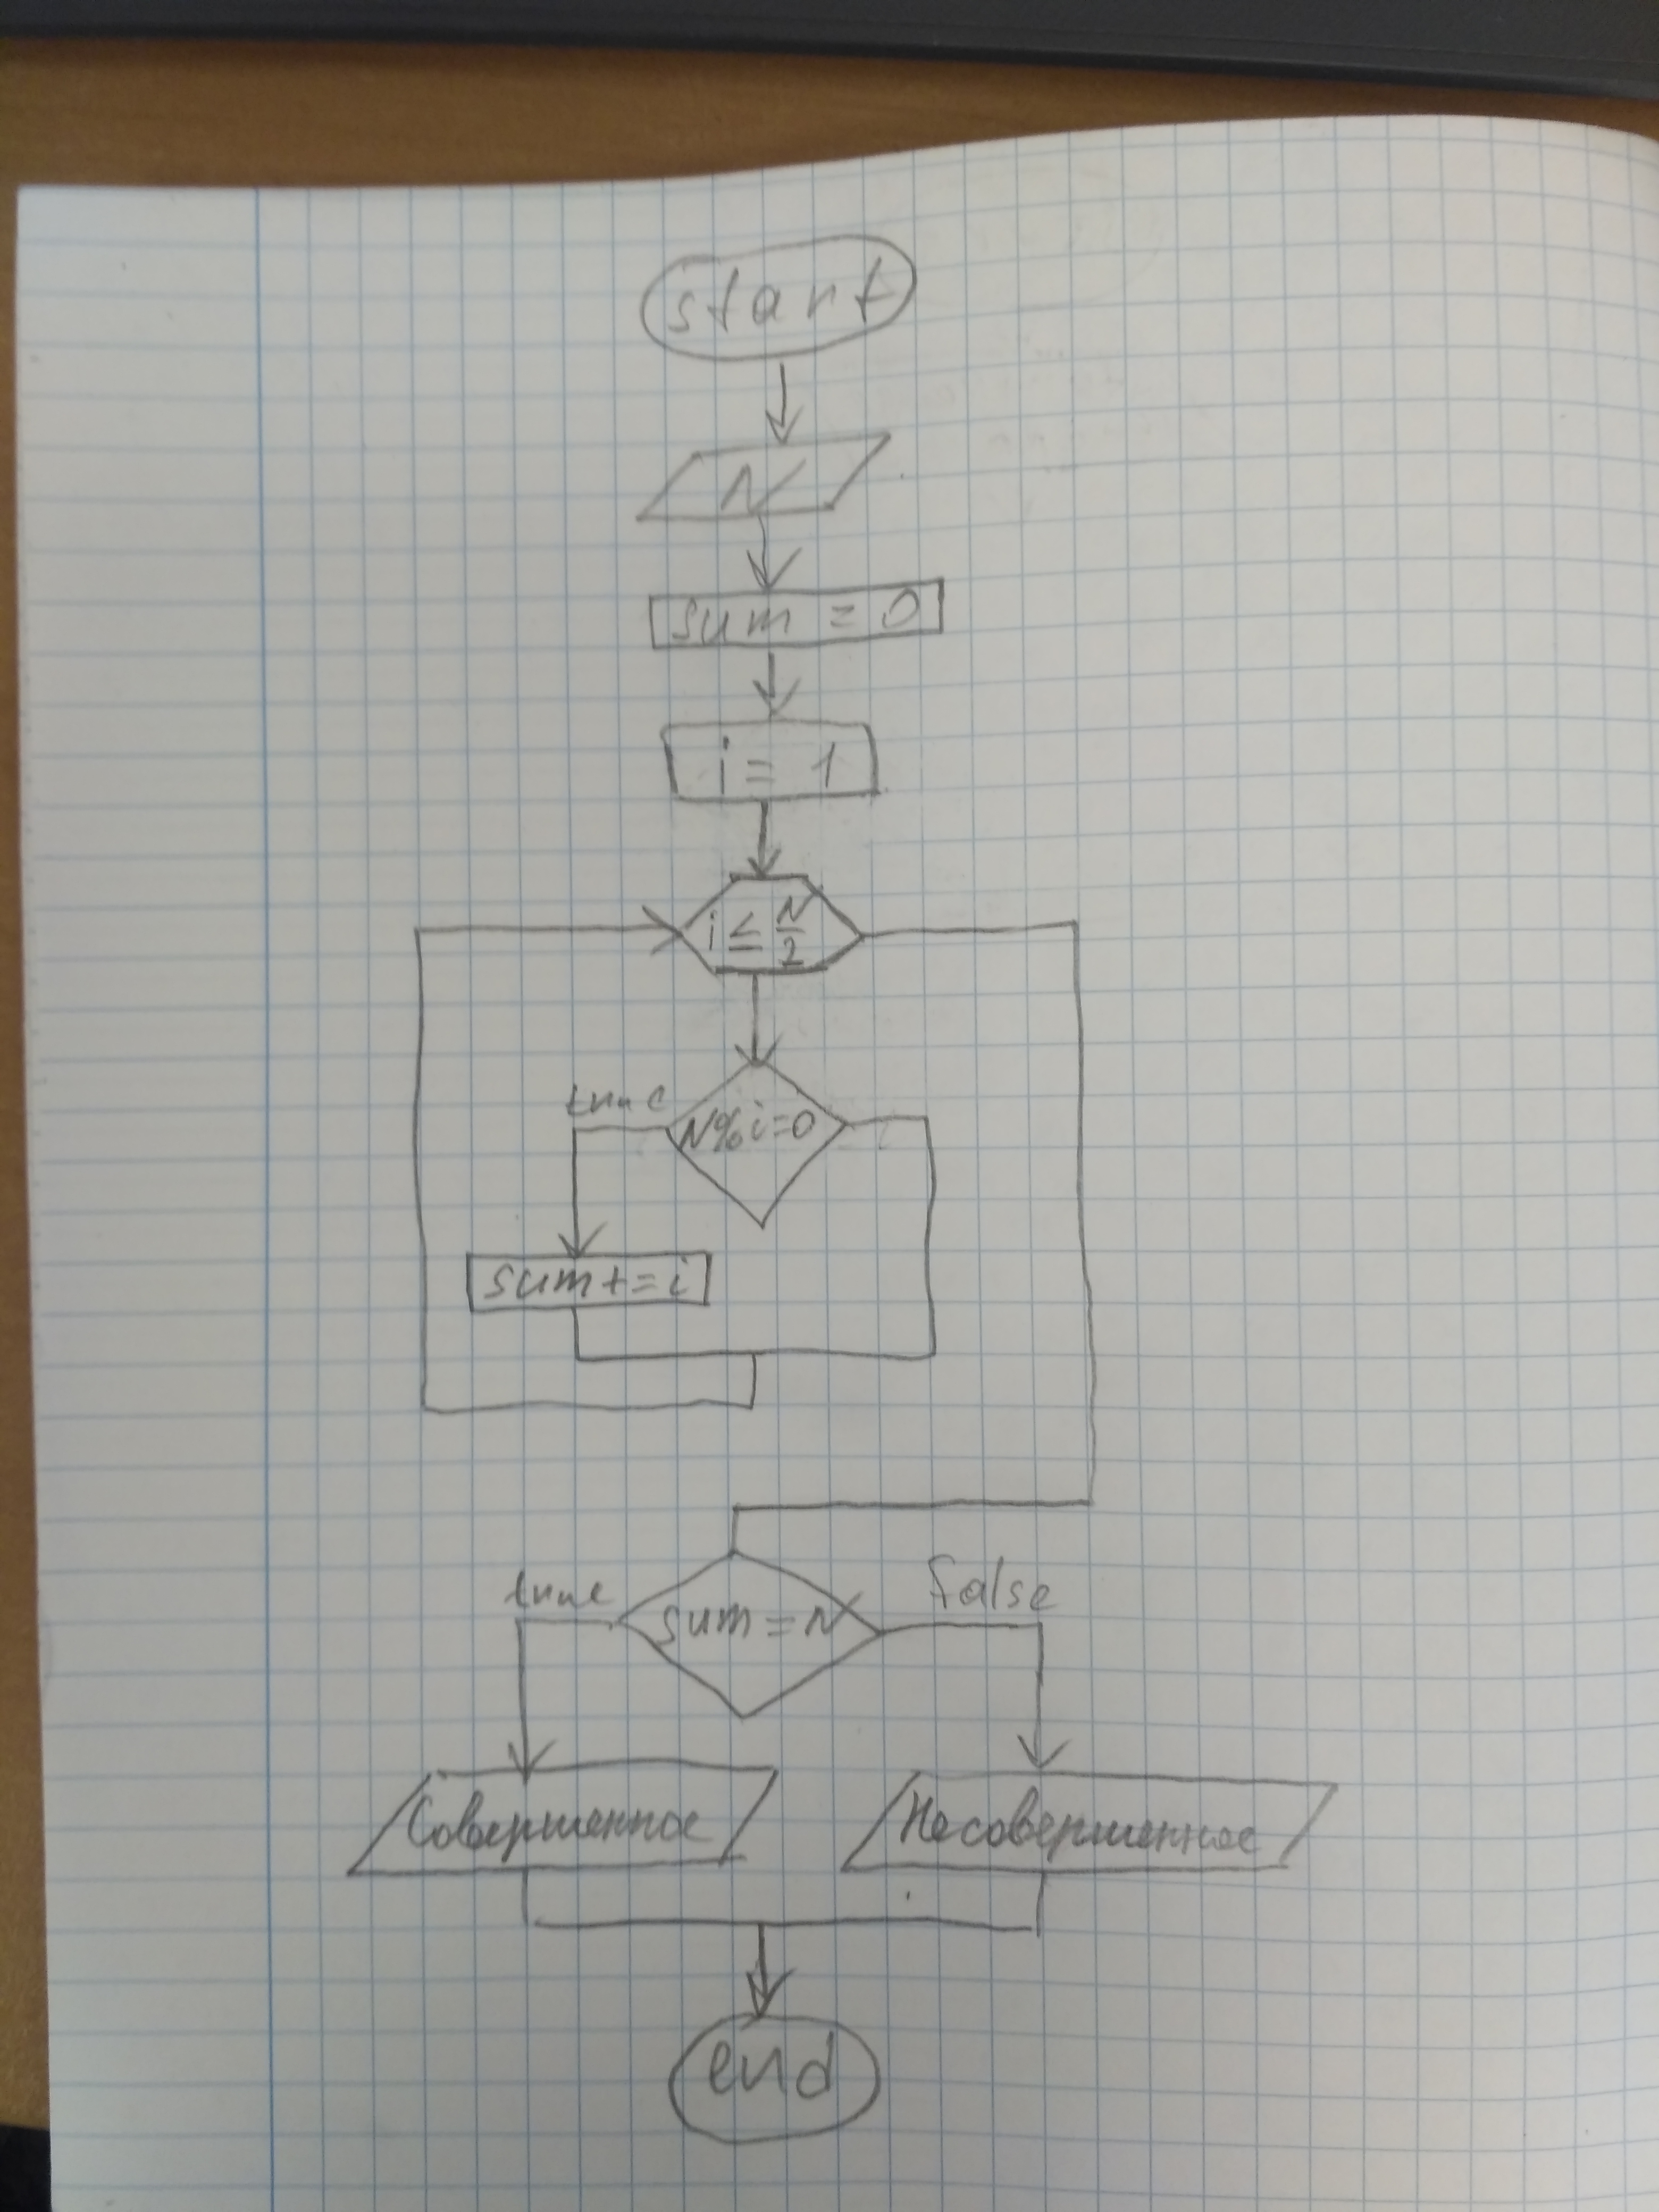 start
N
sum = 0
i = 1
i ≤ N/2
true
N%i=0
sum+=i
true
false
sum = N
Совершенное
Несовершенное
end